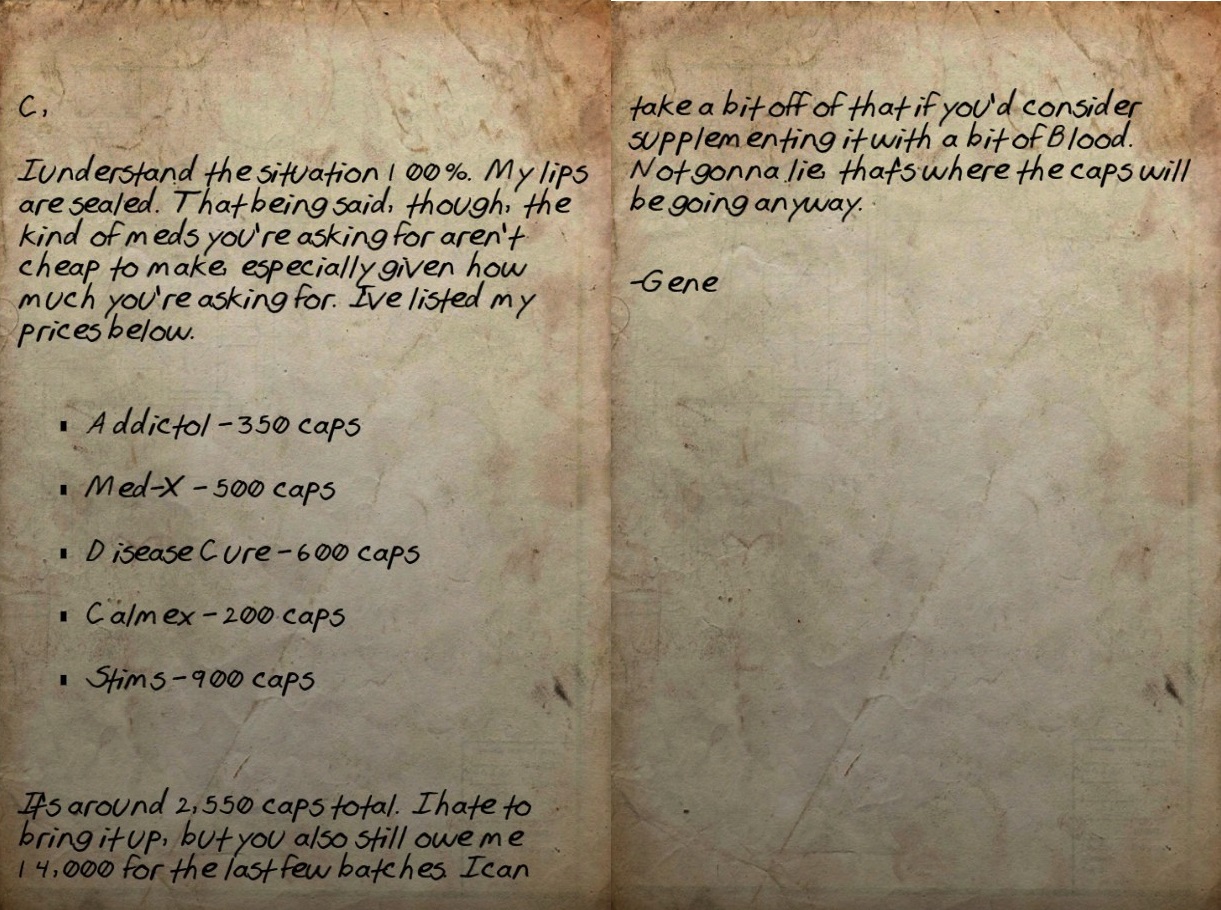 C,
I understand the situation 100%. My lips
are sealed. That being said, though, the
kind of meds you're asking for aren't
cheap to make, especially given how
much you're asking for. I've listed my
prices below.
▪ Addictol - 350 caps
▪ Med-X - 500 caps
▪ Disease Cure - 600 caps
▪ Calmex - 200 caps
▪ Stims - 900 caps
It's around 2,550 caps total. I hate to
bring it up, but you also still owe me
14,000 for the last few batches. I can
take a bit off of that if you'd consider
supplementing it with a bit of Blood.
Not gonna lie, that's where the caps will
be going anyway.
-Gene